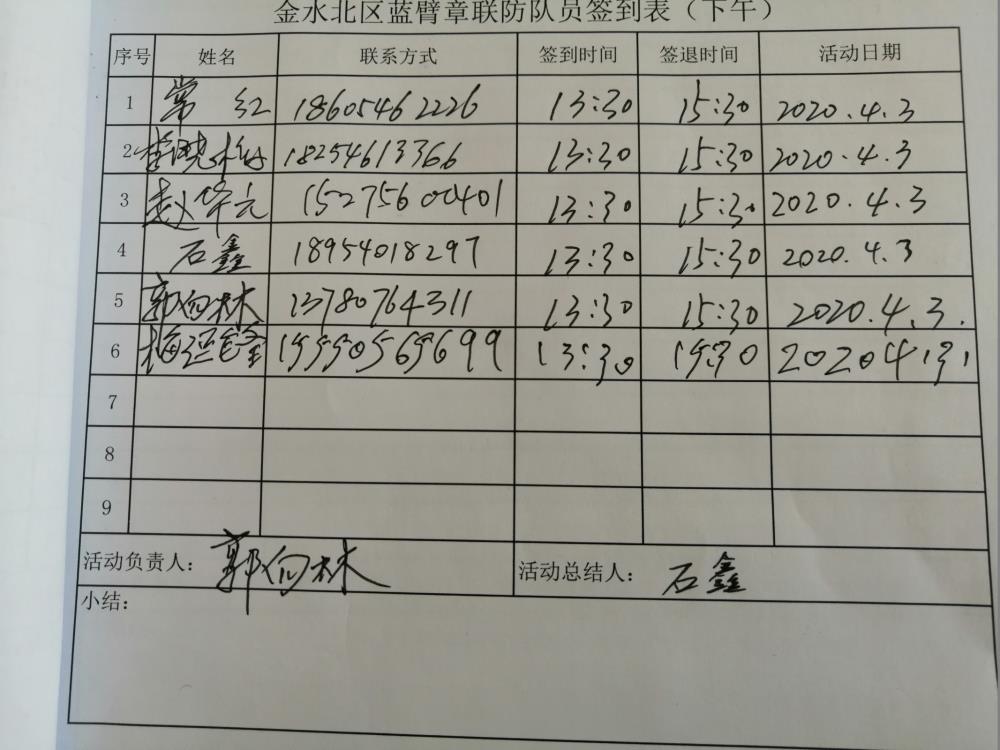 金水北区蓝臂章联防队员签到表（下午）
序号 姓名 联系方式 签到时间 签退时间 活动日期
1 常红 18605462226 13:30 15:30 2020.4.3
2 李晓梅 18254613366 13:30 15:30 2020.4.3
3 赵华元 15275600401 13:30 15:30 2020.4.3
4 石鑫 18954018297 13:30 15:30 2020.4.3
5 郭向林 13780764311 13:30 15:30 2020.4.3.
6 13:30 15:30 2020.4.3
7
8
9
活动负责人： 郭向林 活动总结人： 石鑫
小结：